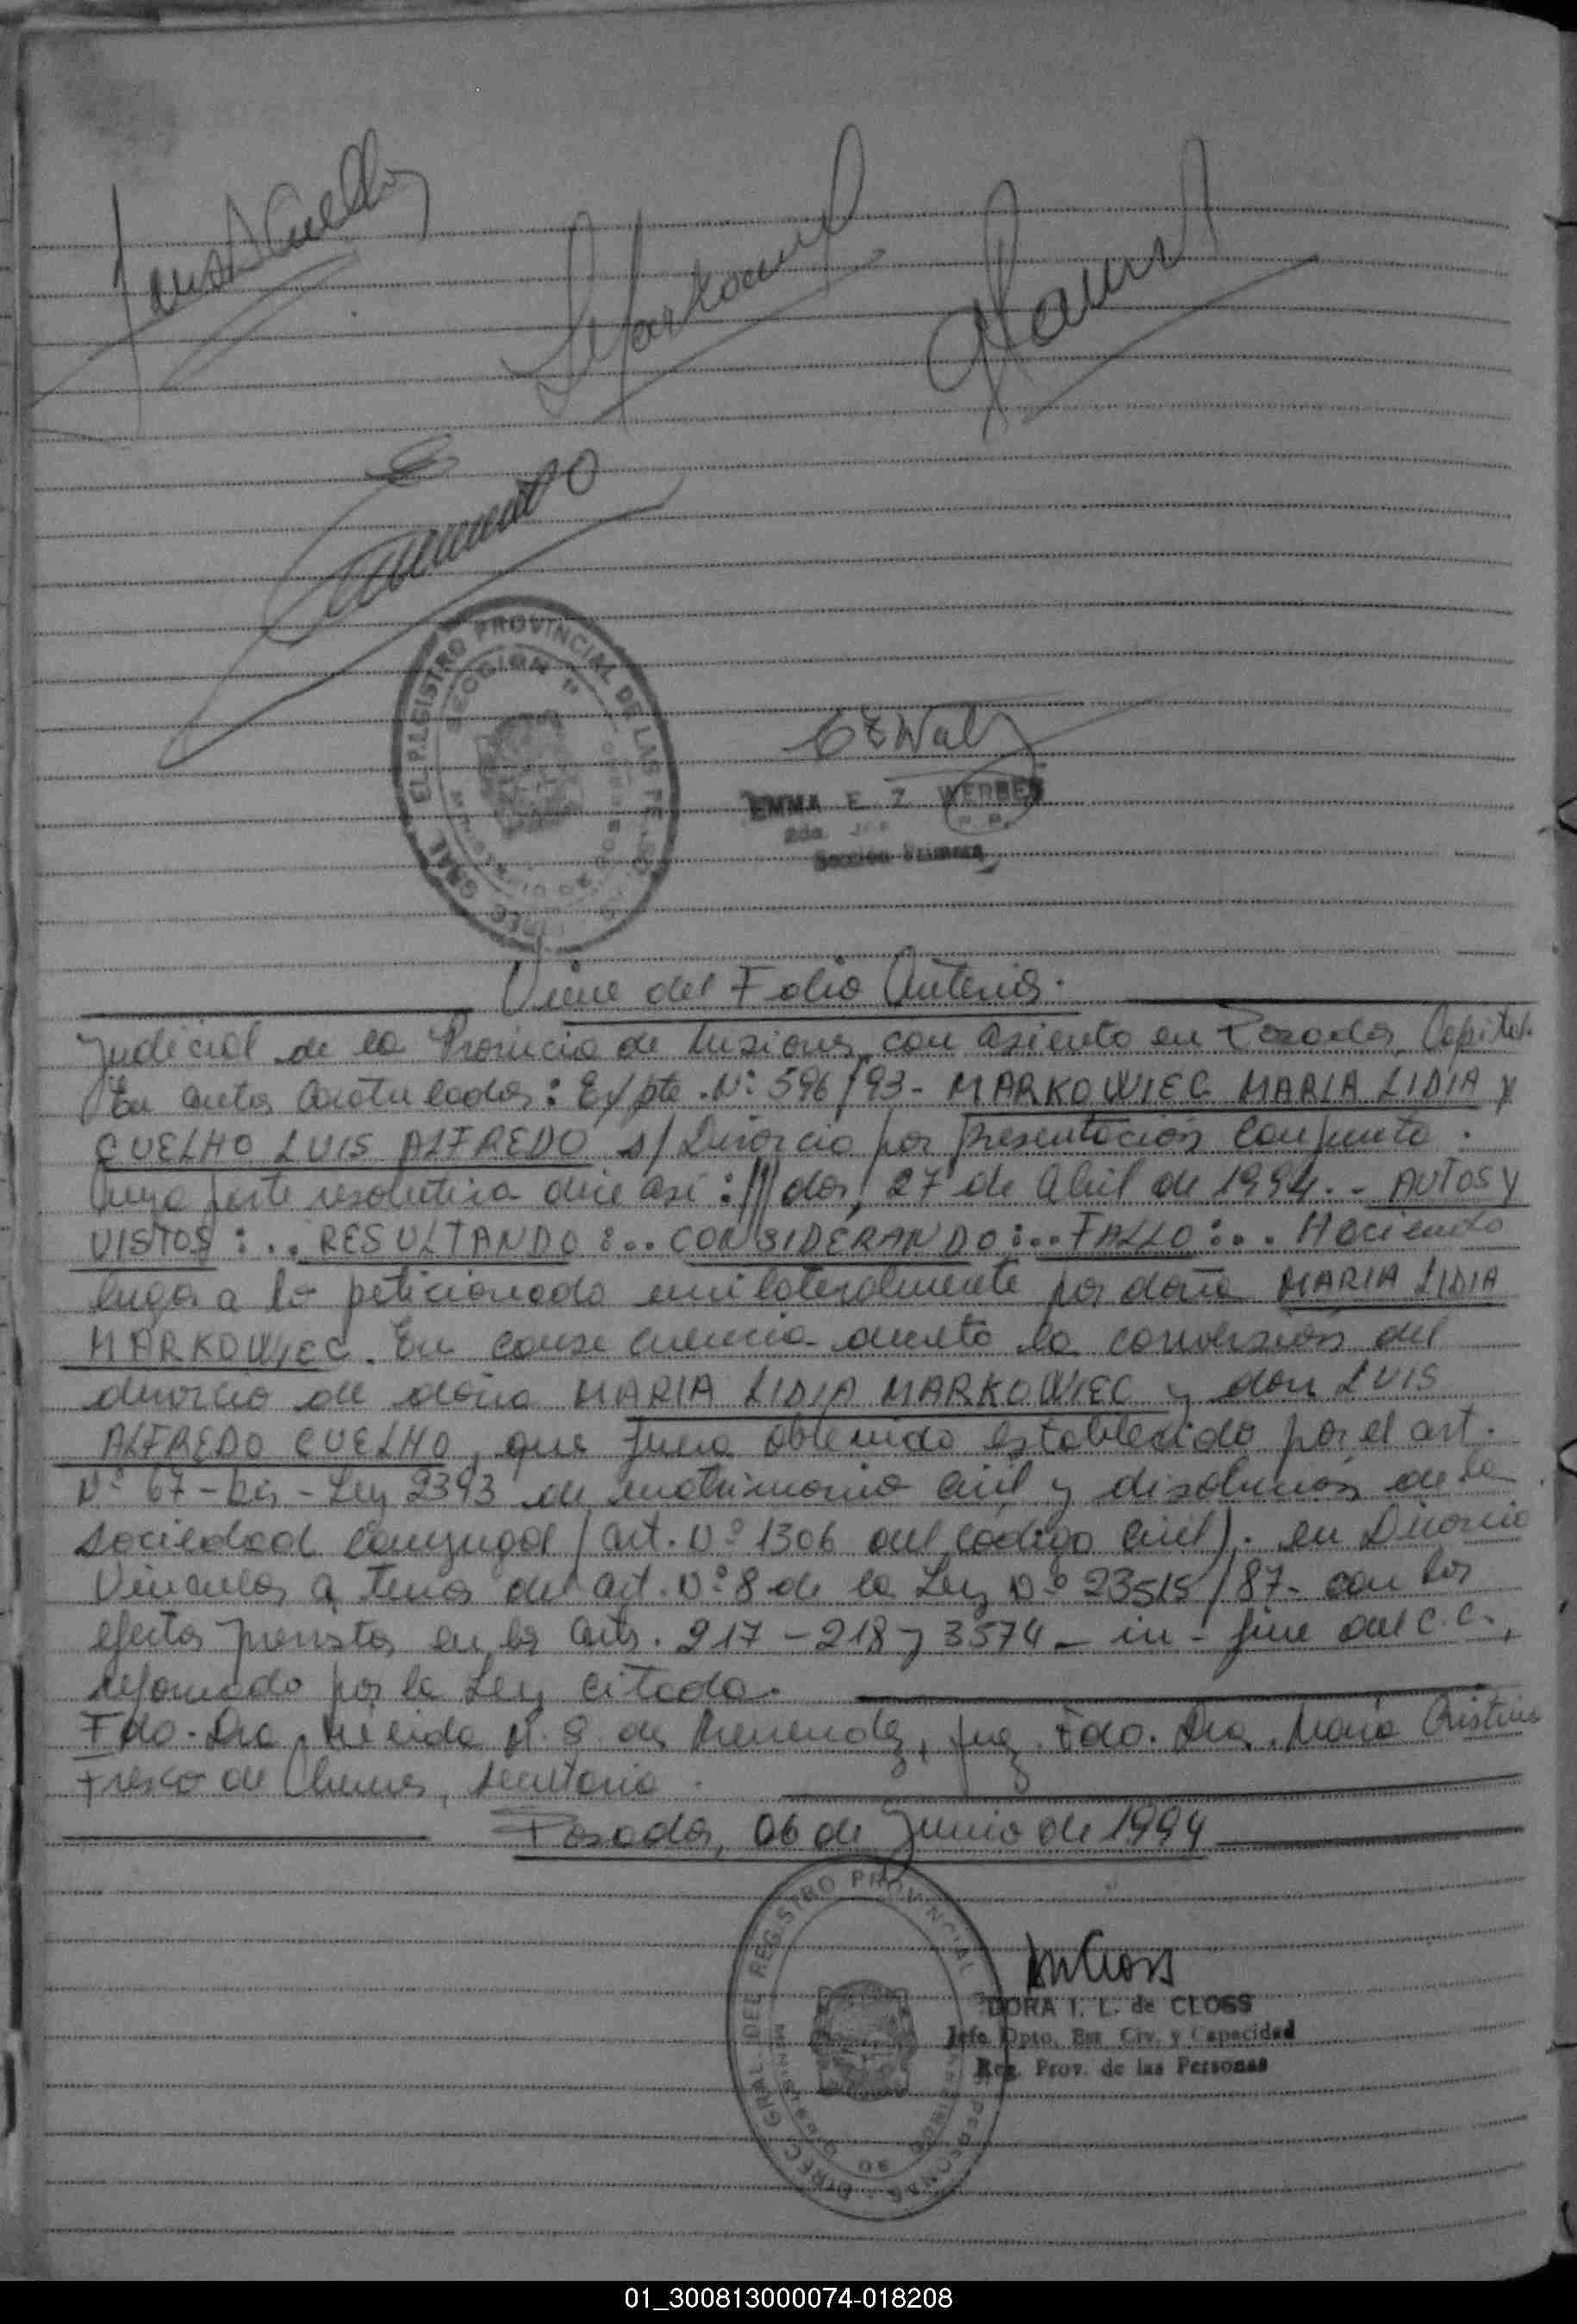 DIREC. GRAL. DEL REGISTRO PROVINCIAL DE LAS
SECCION 1ª
EMMA E. Z. WERBER
2da. Jefe
Sección Primera
Viene del Folio Anterior.
Judicial de la Provincia de Misiones, con asiento en Posadas, Capital.
En autos caratulados: Expte. Nº 596/93- MARKOWIEC MARIA LIDIA y
CUELHO LUIS ALFREDO s/ Divorcio por presentación Conjunta.
Cuya parte resolutiva dice así: /// das, 27 de Abril de 1994.- AUTOS Y
VISTOS:.. RESULTANDO:.. CONSIDERANDO:.. FALLO:.. Haciendo
lugar a lo peticionado unilateralmente por doña MARIA LIDIA
MARKOWIEC. En consecuencia decreto la conversión del
divorcio de doña MARIA LIDIA MARKOWIEC y don LUIS
ALFREDO CUELHO, que fuera obtenido establecido por el art.
Nº 67-bis-Ley 2393 de matrimonio civil y disolución de la
sociedad conyugal (art. Nº 1306 del código civil). en Divorcio
Vincular, a tenor del art. Nº 8 de la Ley Nº 23515/87- con los
efectos previstos en los arts. 217-218 y 3574 - in-fine del C.C.,
reformado por la Ley citada.
Fdo. Dra. M. S. de Menendez, Juez. Fdo. Dra. María Cristina
Fresco de, secretaria.
Posadas, 06 de Junio de 1994
DIREC. GRAL. DEL REGISTRO PROVINCIAL PERSONAS
DORA I. L. de CLOSS
Jefe Dpto. Est. Civ. y Capacidad
Reg. Prov. de las Personas
01_300813000074-018208